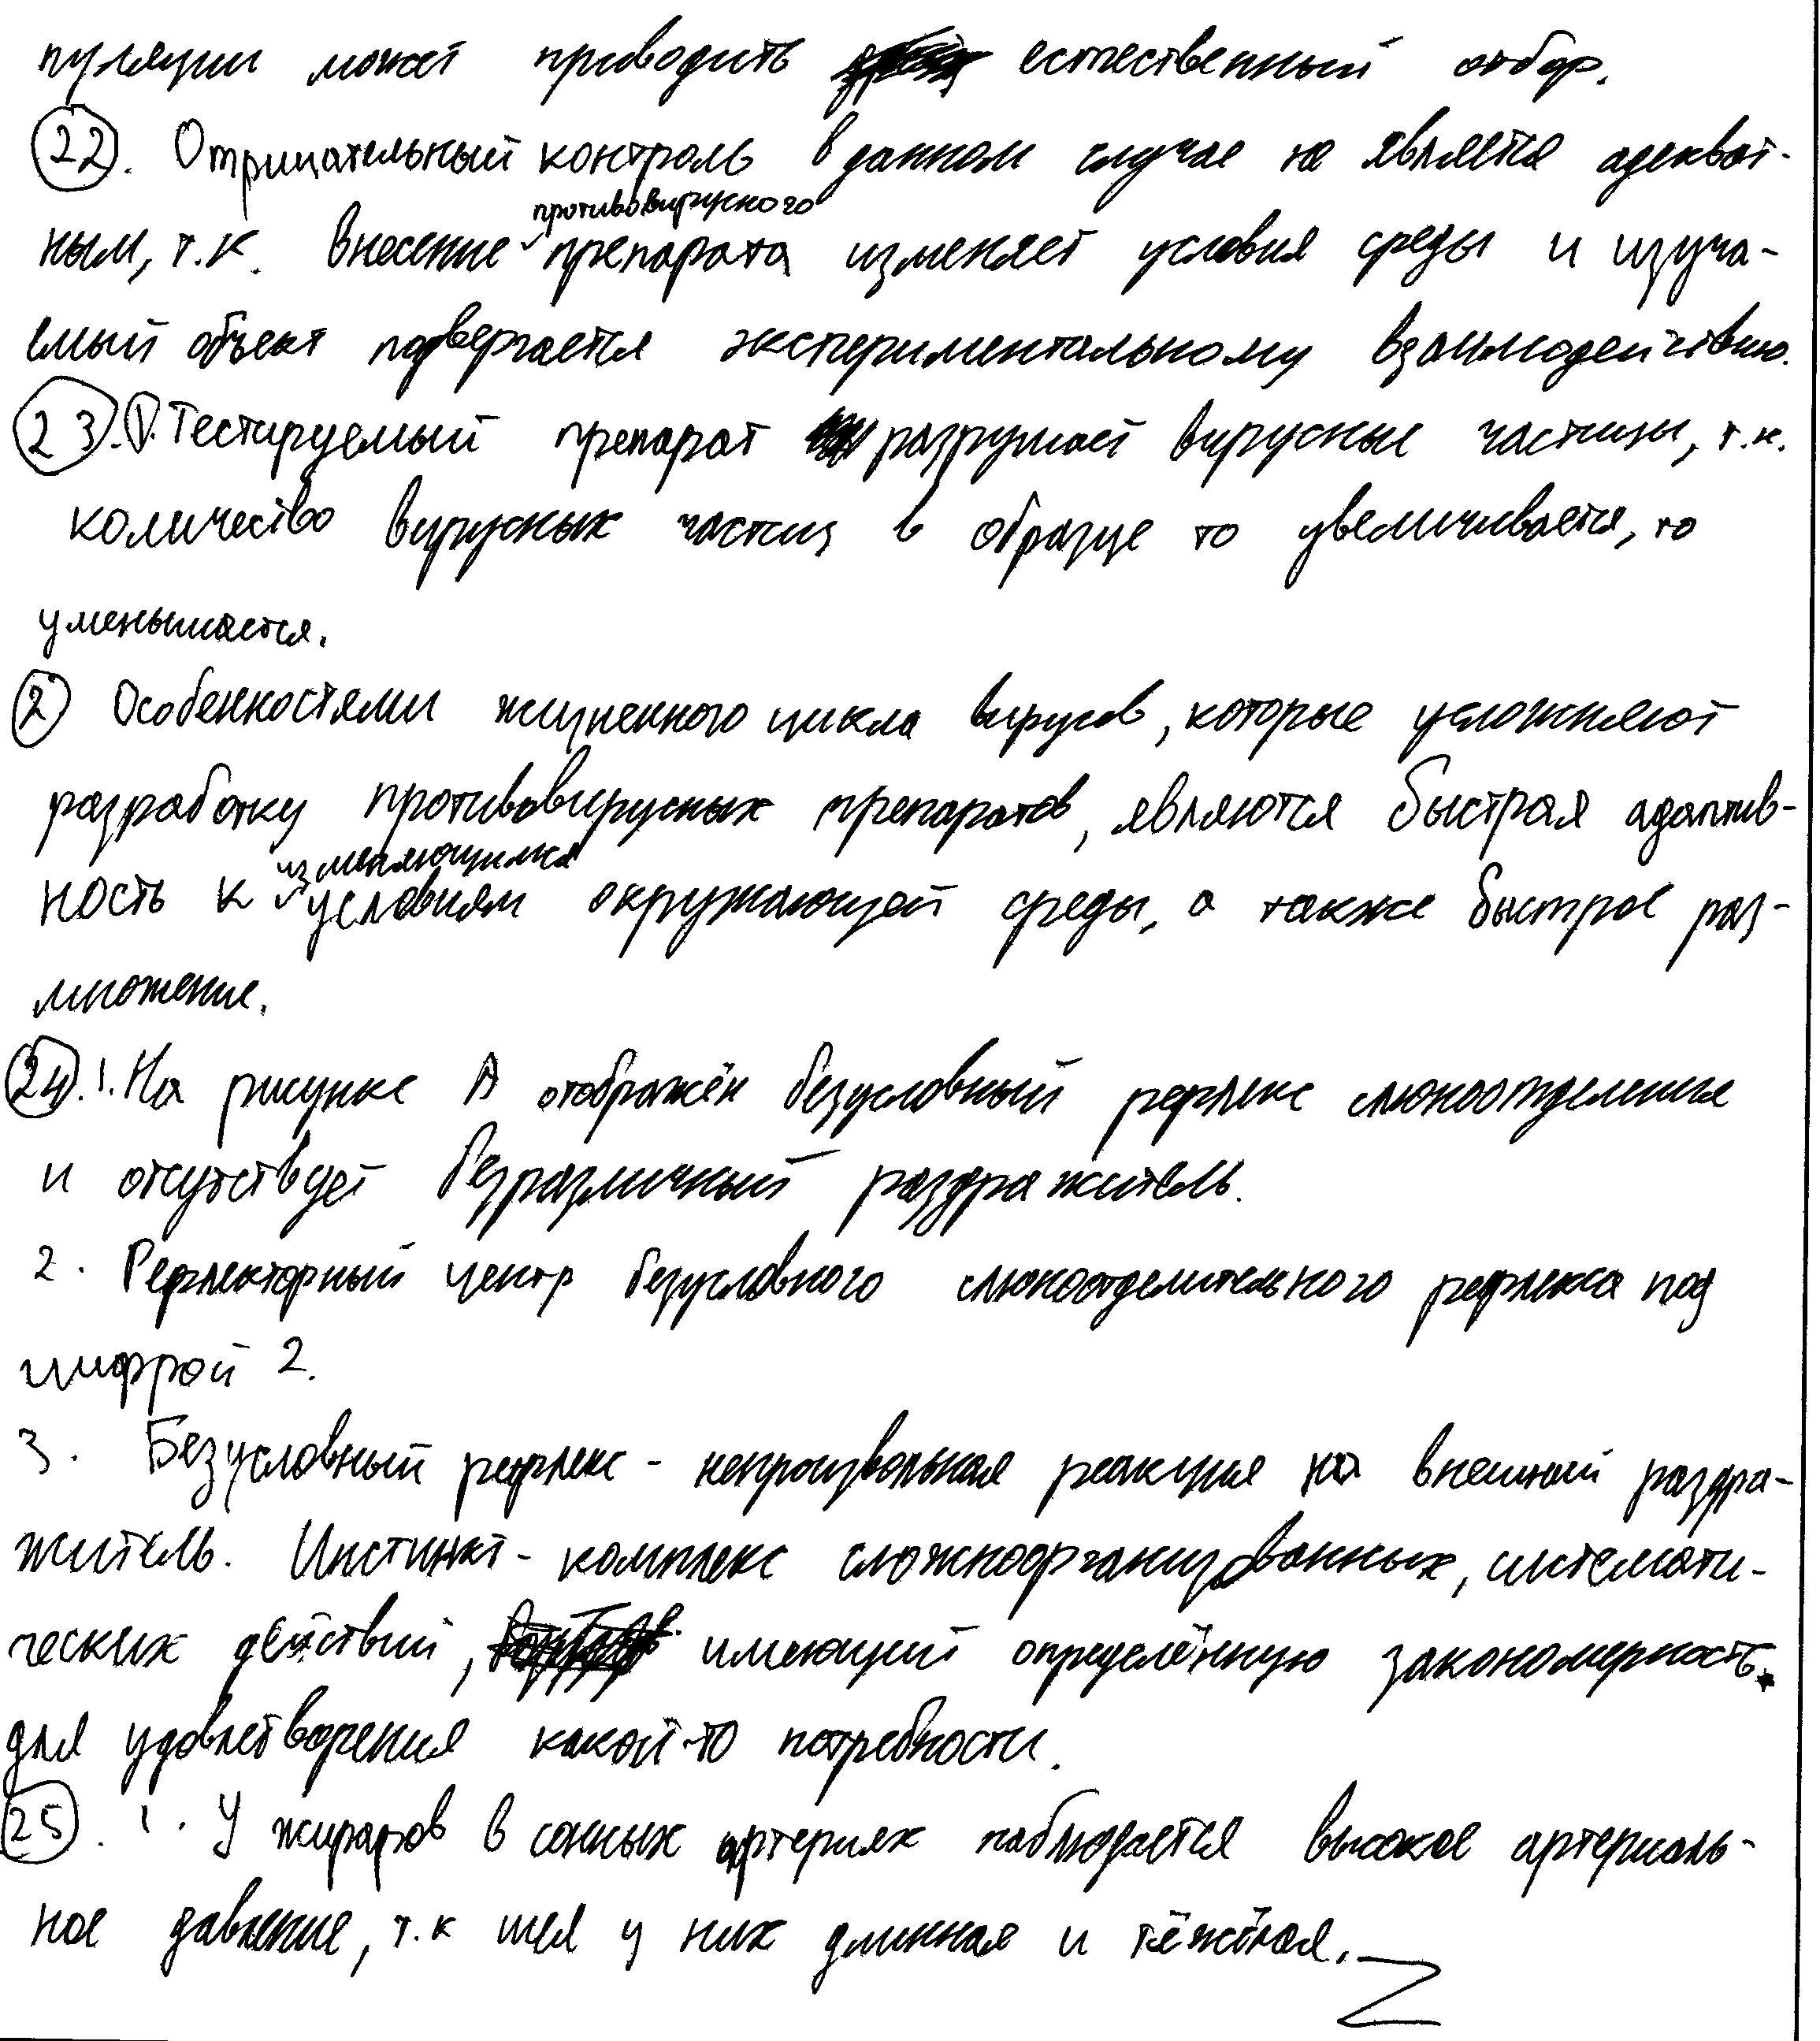 пуляции может приводить естественный отбор.
22. Отрицательный контроль в данном случае не является адекват-
ным, т.к. внесение противовирусного препарата изменяет условия среды и изуча-
емый объект подвергается экспериментальному взаимодействию.
23. 1. Тестируемый препарат разрушает вирусные частицы, т.к.
количество вирусных частиц в образце то увеличивается, то
уменьшается.
2 Особенностями жизненного цикла вирусов, которые усложняют
разработку противовирусных препаратов, являются быстрая адаптив-
ность к изменяющимся условиям окружающей среды, а также быстрое раз-
множение.
24. 1. На рисунке А отображён безусловный рефлекс слюноотделения
и отсутствует безразличный раздражитель.
2. Рефлекторный центр безусловного слюноотделительного рефлекса под
цифрой 2.
3. Безусловный рефлекс - непроизвольная реакция на внешний раздра-
житель. Инстинкт - комплекс сложноорганизованных, системати-
ческих действий, имеющий определённую закономерность
для удовлетворения какой-то потребности.
25. 1. У жирафов в сонных артериях наблюдается высокое артериаль-
ное давление, т.к шея у них длинная и тяжёлая.